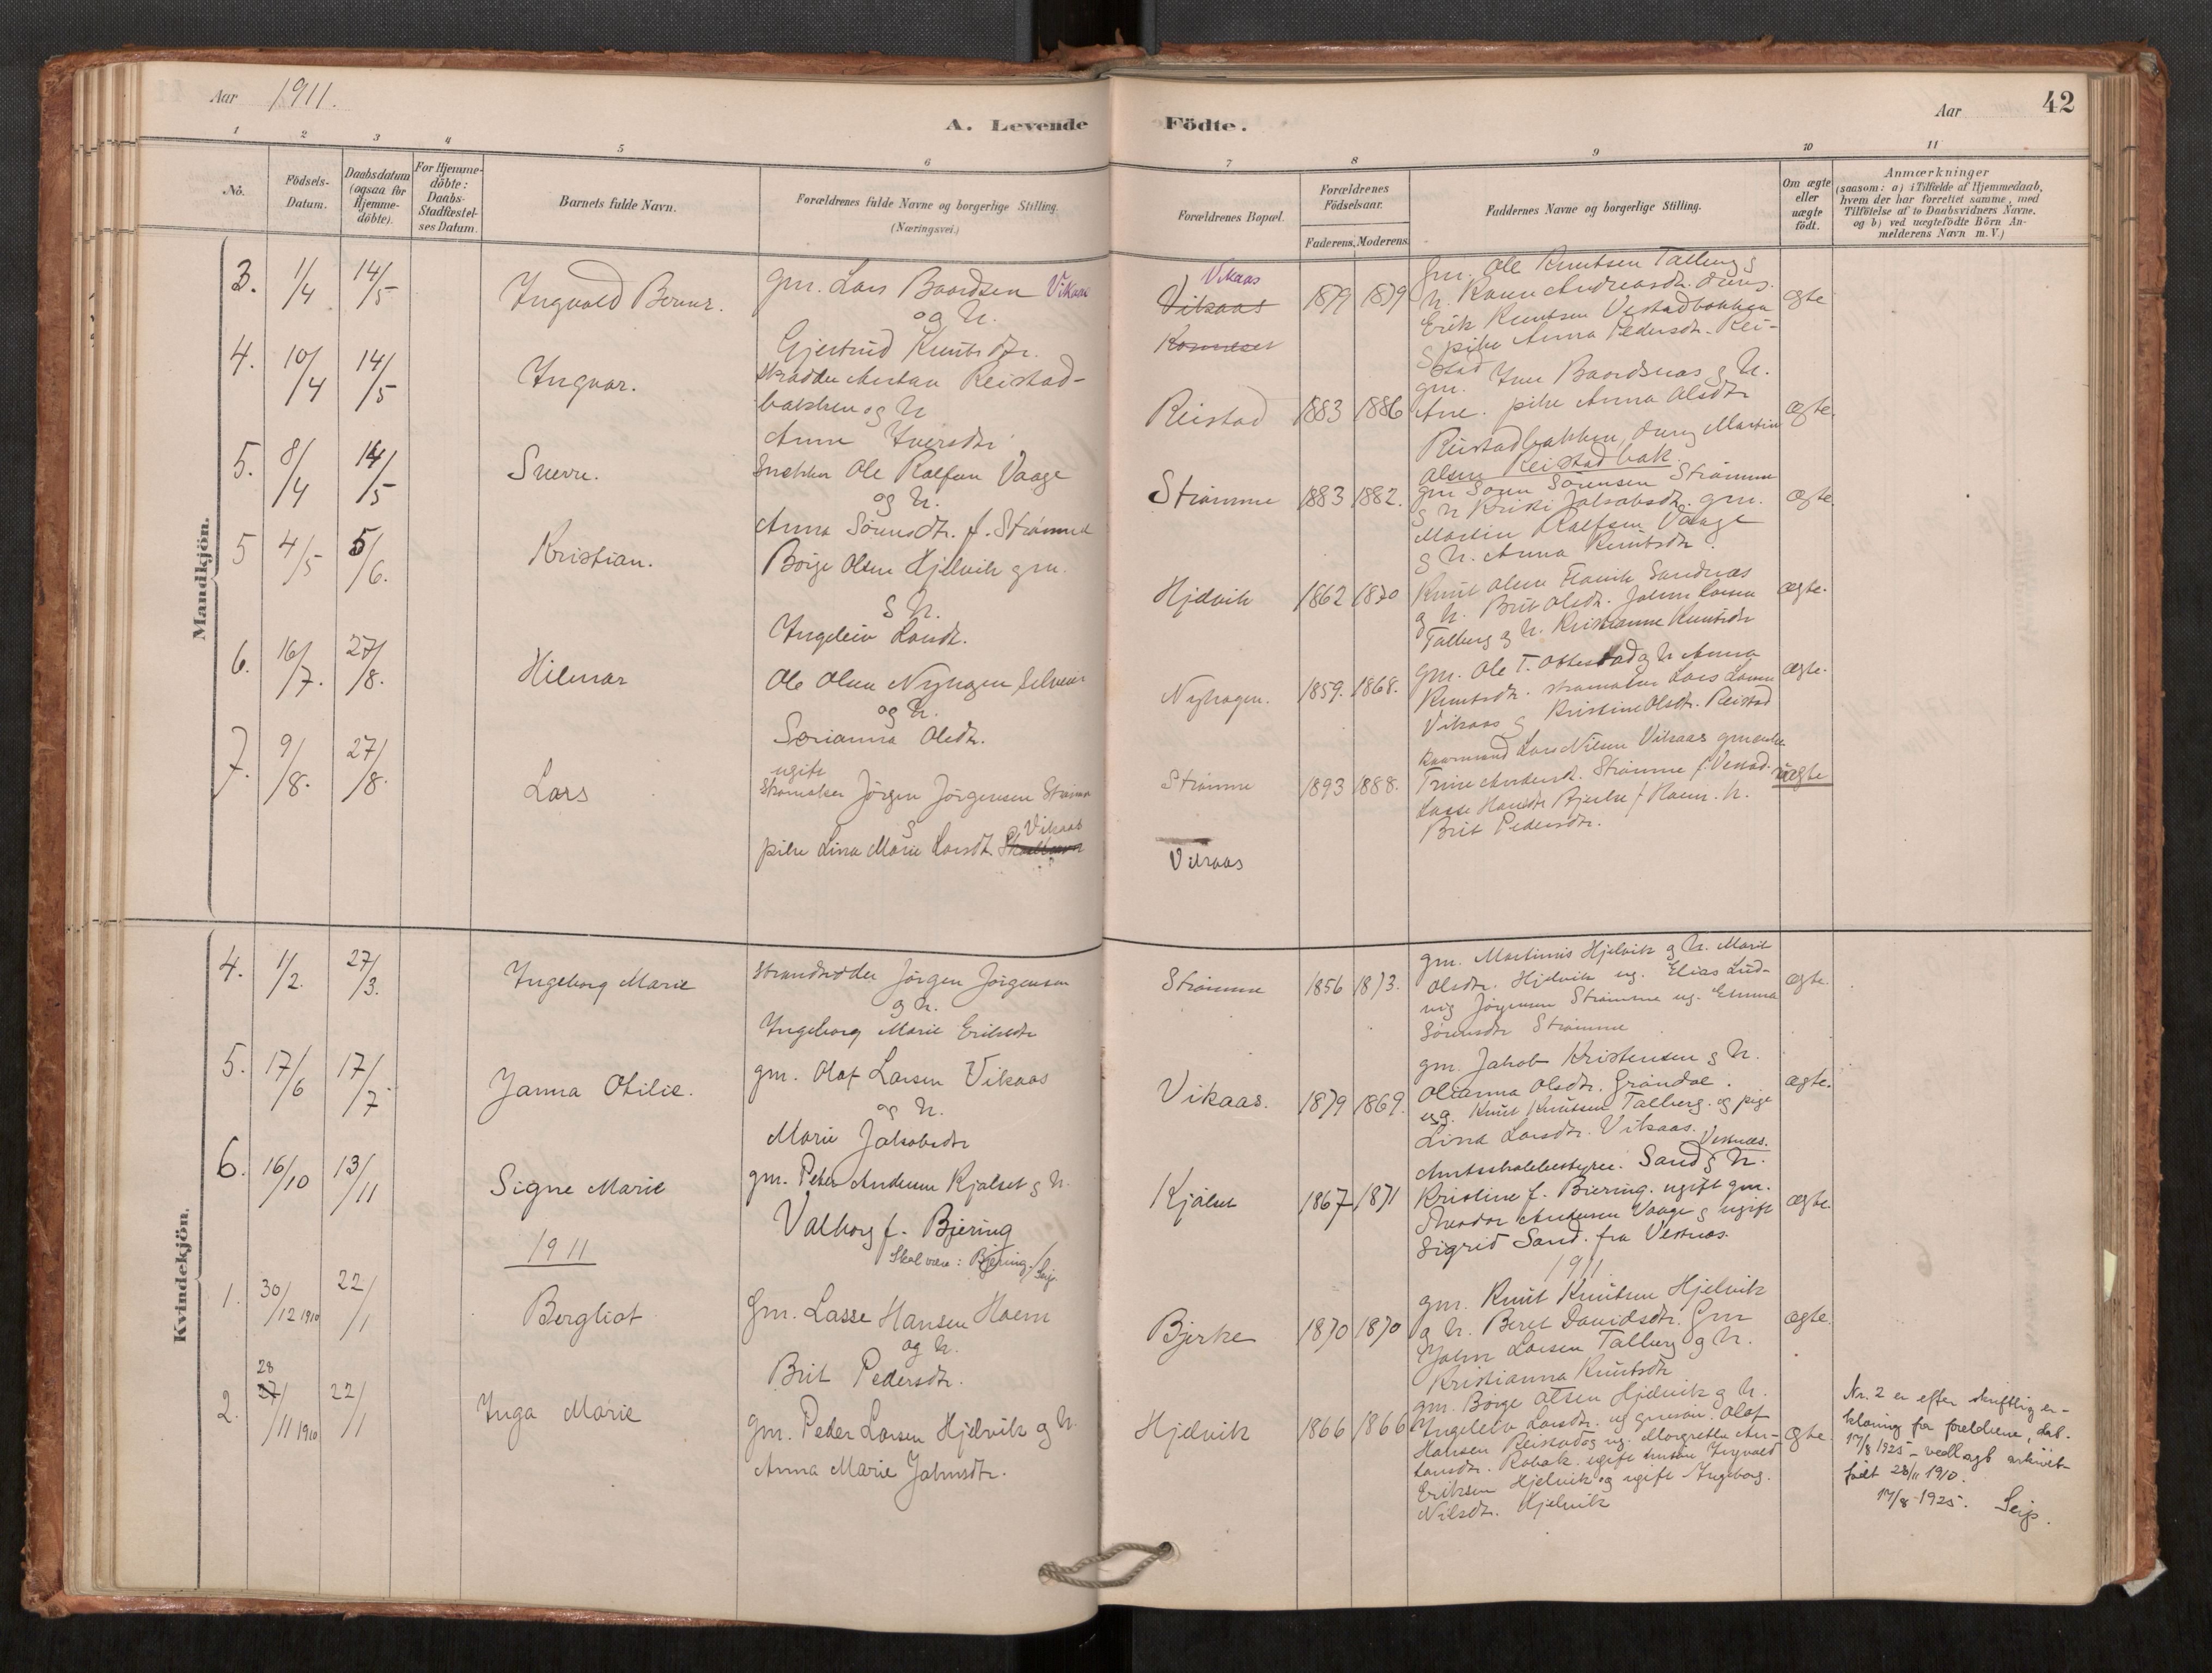 Aar 1911.
A. Levende Födte.
Aar
42
1 2 3 4 5 6 7 8 9 10 11
No.
Födsels-
Datum.
Daabsdatum
(ogsaa for
Hjemme-
döbte).
For Hjemme-
döbte:
Daabs-
Stadfæstel-
ses Datum.
Barnets fulde Navn.
Forældrenes fulde Navne og borgerlige Stilling.
(Næringsvei.)
Forældrenes Bopæl.
Forældrenes
Födselsaar.
Faderens. Moderens.
Faddernes Navne og borgerlige Stilling.
Om ægte
eller
uægte
födt.
Anmærkninger
(saasom: a) i Tilfælde af Hjemmedaab,
hvem der har forrettet samme, med
Tilföielse af to Daabsvidners Navne.
og b) ved uægtefödte Börn An-
melderens Navn m.V.)
Mandkjön.
3. 1/4 14/5 Ingvald
gm. Lars Baardsen Vikaas
og h.
Gjertrud Knutsdtr.
Vikaas
Vikaas
1879 1879
gm. Ole Knutsen Talberg g
h. Karen Andreasdtr. dreng
Erik Knutsen Vestadbakken
g pike Anna Pedersdtr. Rei-
stad
ægte
4. 10/4 14/5 Ingvar.
skrædder Anton Reistad-
bakken og h
Anna Iversdtr
Reistad 1883 1886
gm. Iver Baardsnæs g h.
Ane. pike Anna Olsdtr
Reistadbakken, dreng Martin
Olsen Reistadbak.
ægte.
5. 8/4 14/5 Sverre.
Snekker Ole Rolfsen Vaage
og h.
Anna Sörensdtr. f. Strömme
Strömme 1883 1882.
gm Sören Sörensen Strömme
g h Kristi Jakobsdtr. gm.
Martin Rolfsen Vaage
g h. Anna Knutsdtr.
ægte.
5 4/5 5/6. Kristian.
Börge Olsen Hjelvik gm.
g h.
Ingeleiv Larsdtr.
Hjelvik 1862 1870
Knut Olsen Flovik Sandnæs
g h. Brit Olsdtr. John Larsen
Talberg g h. Kristianne Knutsdtr
ægte.
6. 16/7. 27/8. Hilmar
Ole Olsen Nyhagen
og h.
Serianna Olsdtr.
Nyhagen. 1859. 1868.
gm. Ole T. Ottestad g h Anna
Knutsdtr. skomaker Lars Larsen
Vikaas g Kristine Olsdtr. Reistad
ægte.
7. 9/8. 27/8. Lars
ugift
Skomaker Jörgen Jörgensen Strömme
g
pike Lina Marie Larsdtr. Vikaas
Strömme 1893 1888.
Vikaas
Kaarmand Lars Nilsen Vikaas gm enke
Trine Andersd. Strömme f. Vestad.
Lasse Hansen Bjerke f Hoem. h.
Brit Pedersdtr.
uægte
Kvindekjön.
4. 1/2. 27/3. Ingeborg Marie
strandsidder Jörgen Jörgensen
g h.
Ingeborg Marie Eriksdtr
Strömme 1856 1873.
gm. Martinus Hjelvik g h. Marit
Olsdtr. Hjelvik ug. Elias Lud-
vig Jörgensen Strömme ug. Emma
Sörensdtr Strömme
ægte.
5. 17/6 17/7 Janna Otilie.
gm. Olaf Larsen Vikaas
og h.
Marie Jakobsdtr
Vikaas. 1879 1869.
gm. Jakob Kristensen g h.
Olianna Olsdtr. Gröndal.
ug. Knut Knutsen Talberg. og pige
Lina Larsdtr. Vikaas.
ægte.
6. 16/10 13/11 Signe Marie
gm. Peter Andersen Kjölset g h.
Valborg f. Bjering
Skal være: Bjering./Seip.
Kjölset 1867 1871
Vestnæs.
Amtsskolebestyrer. Sand g h.
Kristine f. Biering. ugift gm.
Theodor Andersen Vaage g ugift
Sigrid Sand. fra Vestnæs.
ægte.
1911
1911
1. 30/12 1910 22/1 Bergliot
Gm. Lasse Hansen Hoem
og h.
Brit Pedersdtr.
Bjerke 1870 1870
gm. Knut Knutsen Hjelvik
g h. Beret Davidsdtr. Gm
John Larsen Talberg og h.
Kristianna Knutsdtr
ægte.
2. 28 27/11 1910 22/1 Inga Marie
gm. Peder Larsen Hjelvik g h
Anna Marie Johnsdtr.
Hjelvik 1866 1866
gm. Börge Olsen Hjelvik g h.
Ingeleiv Larsdtr. ug gmsön. Olaf
Hansen Reistad og ug. Margrethe An-
tonsdtr. Robak. ugift Ingvald
Eriksen Hjelvik og ugift Ingeborg.
Nilsdtr. Hjelvik
ægte.
Nr. 2 er efter skriftlig er-
klæring fra foreldrene, dat.
17/8 1925 - vedlagt arkivet-
født 28/11 1910.
17/8-1925. Seip.